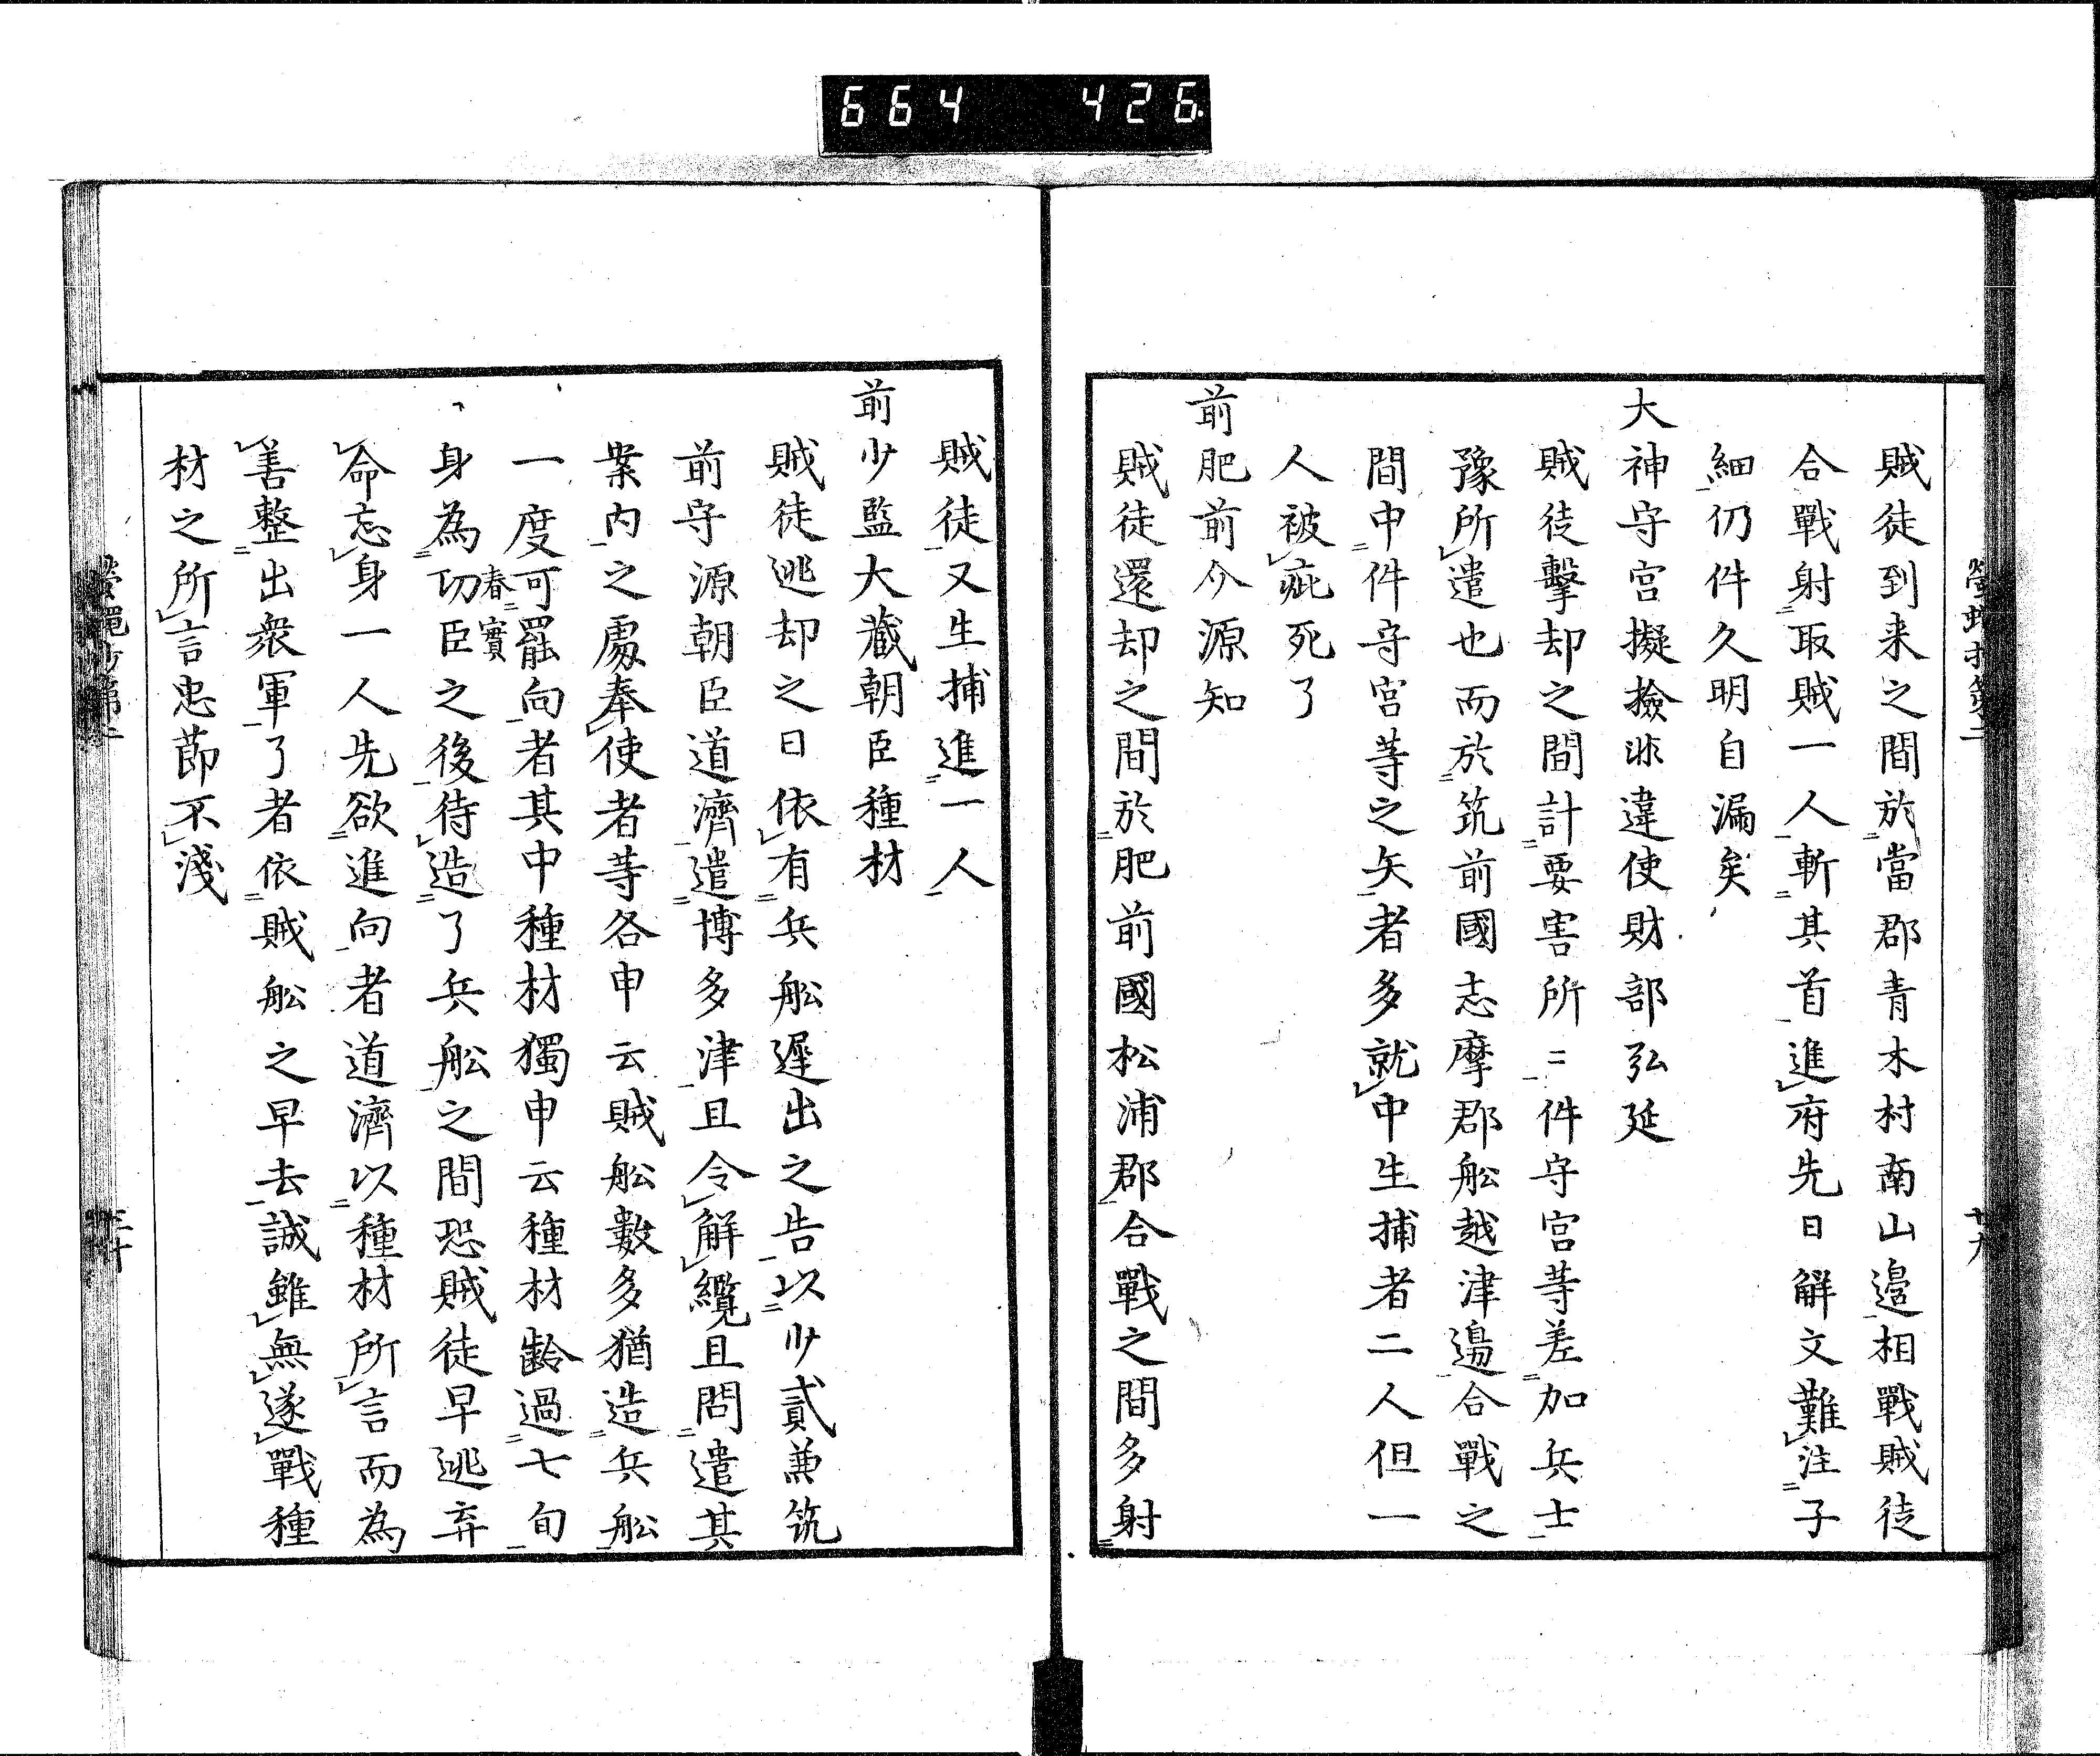 664 426
賊徒到来之間於當郡青木村南山邉相戰賊徒
合戰射取賊一人斬其首進府先日解文難注子
細仍件久明自漏矣
大神守宮擬撿非違使財部弘延
賊徒擊却之間計要害所〻件守宮等差加兵士
豫所遣也而於筑前國志摩郡舩越津邊合戰之
間中件守宮等之矢者多就中生捕者二人但一
人被疵死了
前肥前介源知
賊徒還却之間於肥前國松浦郡合戰之間多射
賊徒又生捕進一人
前少監大藏朝臣種材
賊徒逃却之日依有兵舩遲出之告以少貳兼筑
前守源朝臣道濟遣博多津且令解纜且問遣其
案内之處奉使者等各申云賊舩數多猶造兵舩
一度可罷向者其中種材獨申云種材齡過七旬
春實
身為功臣之後待造了兵舩之間恐賊徒早逃弃
命忘身一人先欲進向者道濟以種材所言而為
善整出衆軍了者依賊舩之早去誠雖無遂戰種
材之所言忠節不淺